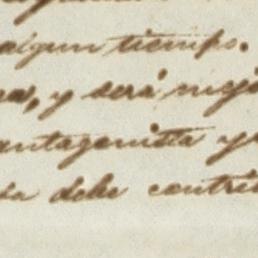 algun tiempo.
, y será mej
antagonista y
da debe contri